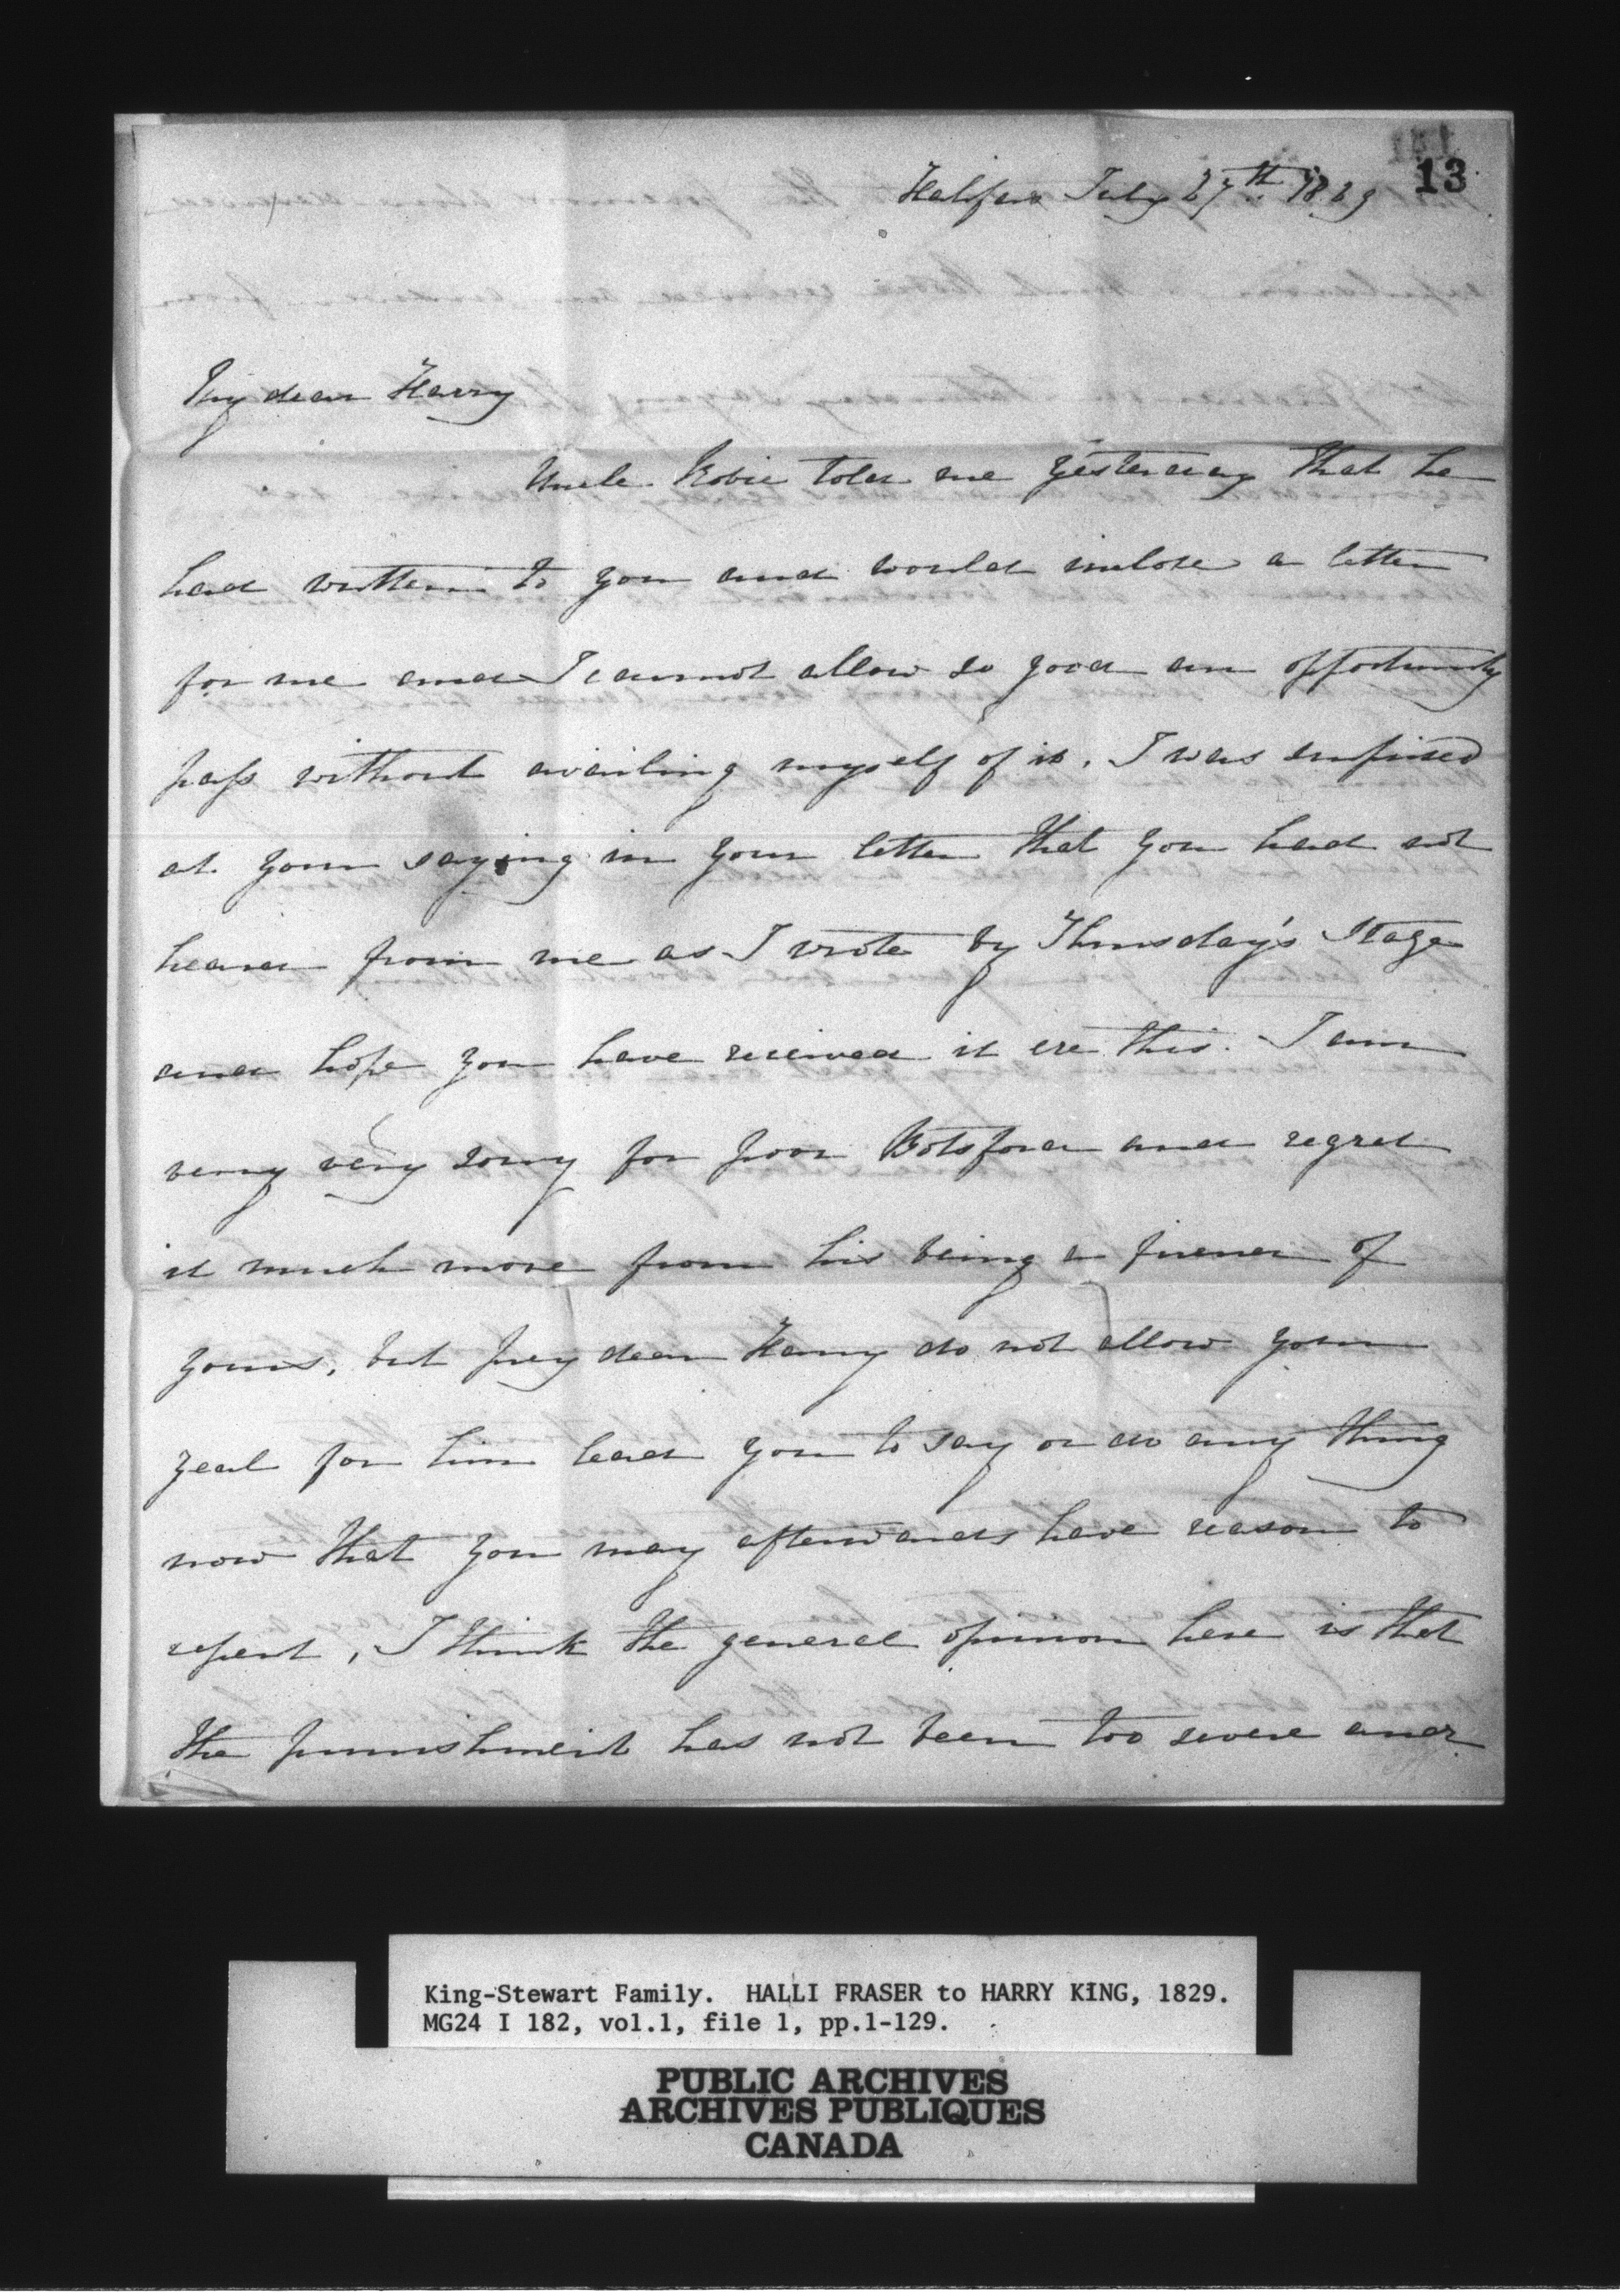 13
Halifax July 27th 1829
My dear Harry
Uncle Robie told me yesterday that he
had written to you and would inclose a letter
for me and I cannot allow so good an opportunity
pass without availing myself of it. I was surprised
at your saying in your letter that you had not
heard from me as I wrote by Thursday's Stage
and hope you have received it ere this. I am
very very sorry for poor Botsford and regret
it much more from his being a friend of
yours, but pray dear Harry do not allow your
zeal for him lead you to say or do any thing
now that you may afterwards have reason to
repent, I think the general opinion here is that
the punishment has not been too severe and
King-Stewart Family. HALLI FRASER to HARRY KING, 1829.
MG24 I 182, vol.1, file 1, pp.1-129.
PUBLIC ARCHIVES
ARCHIVES PUBLIQUES
CANADA